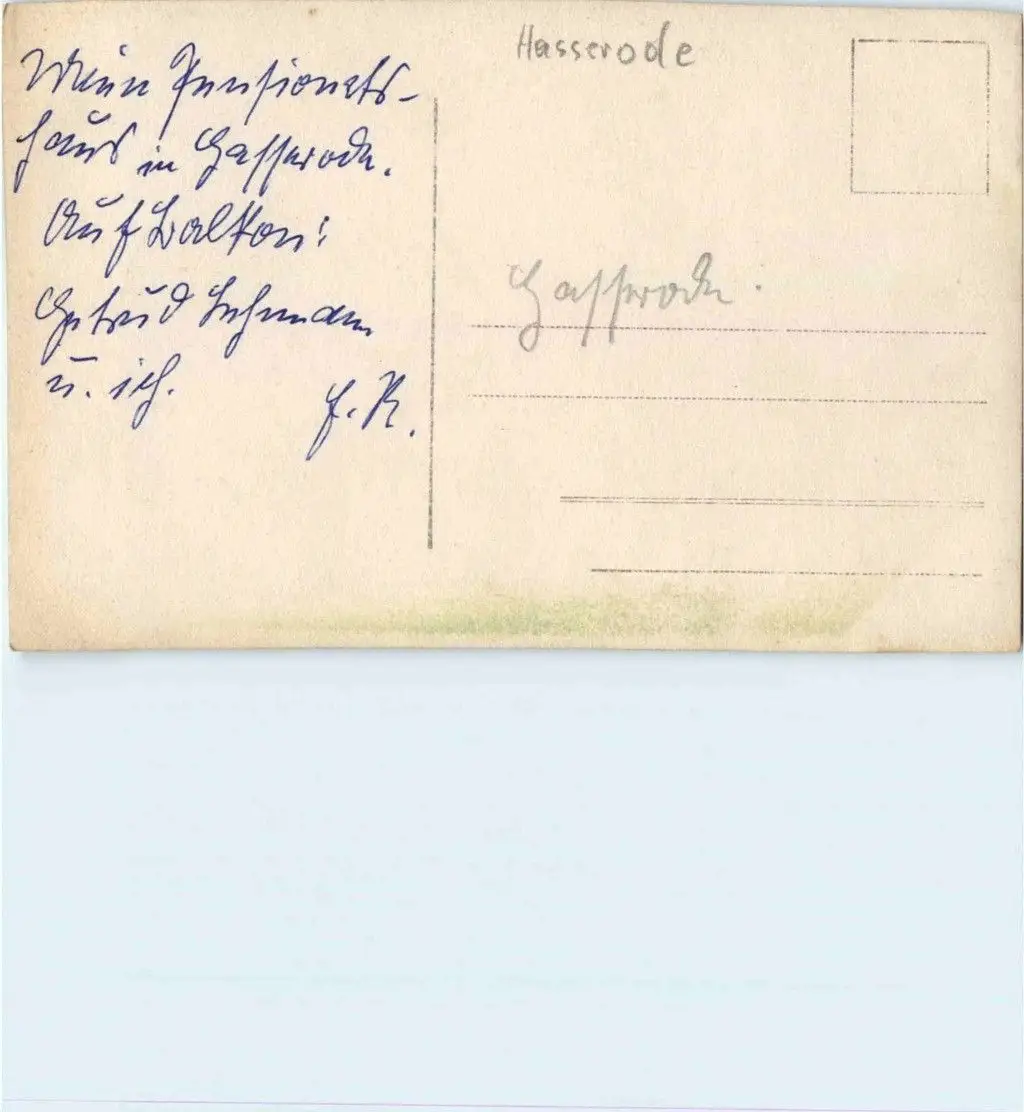 Mein Pensionats-
haus in Hasserode.
Auf Balkon:
Gertrud
u. ich.
E. R.
Hasserode
Hasserode.